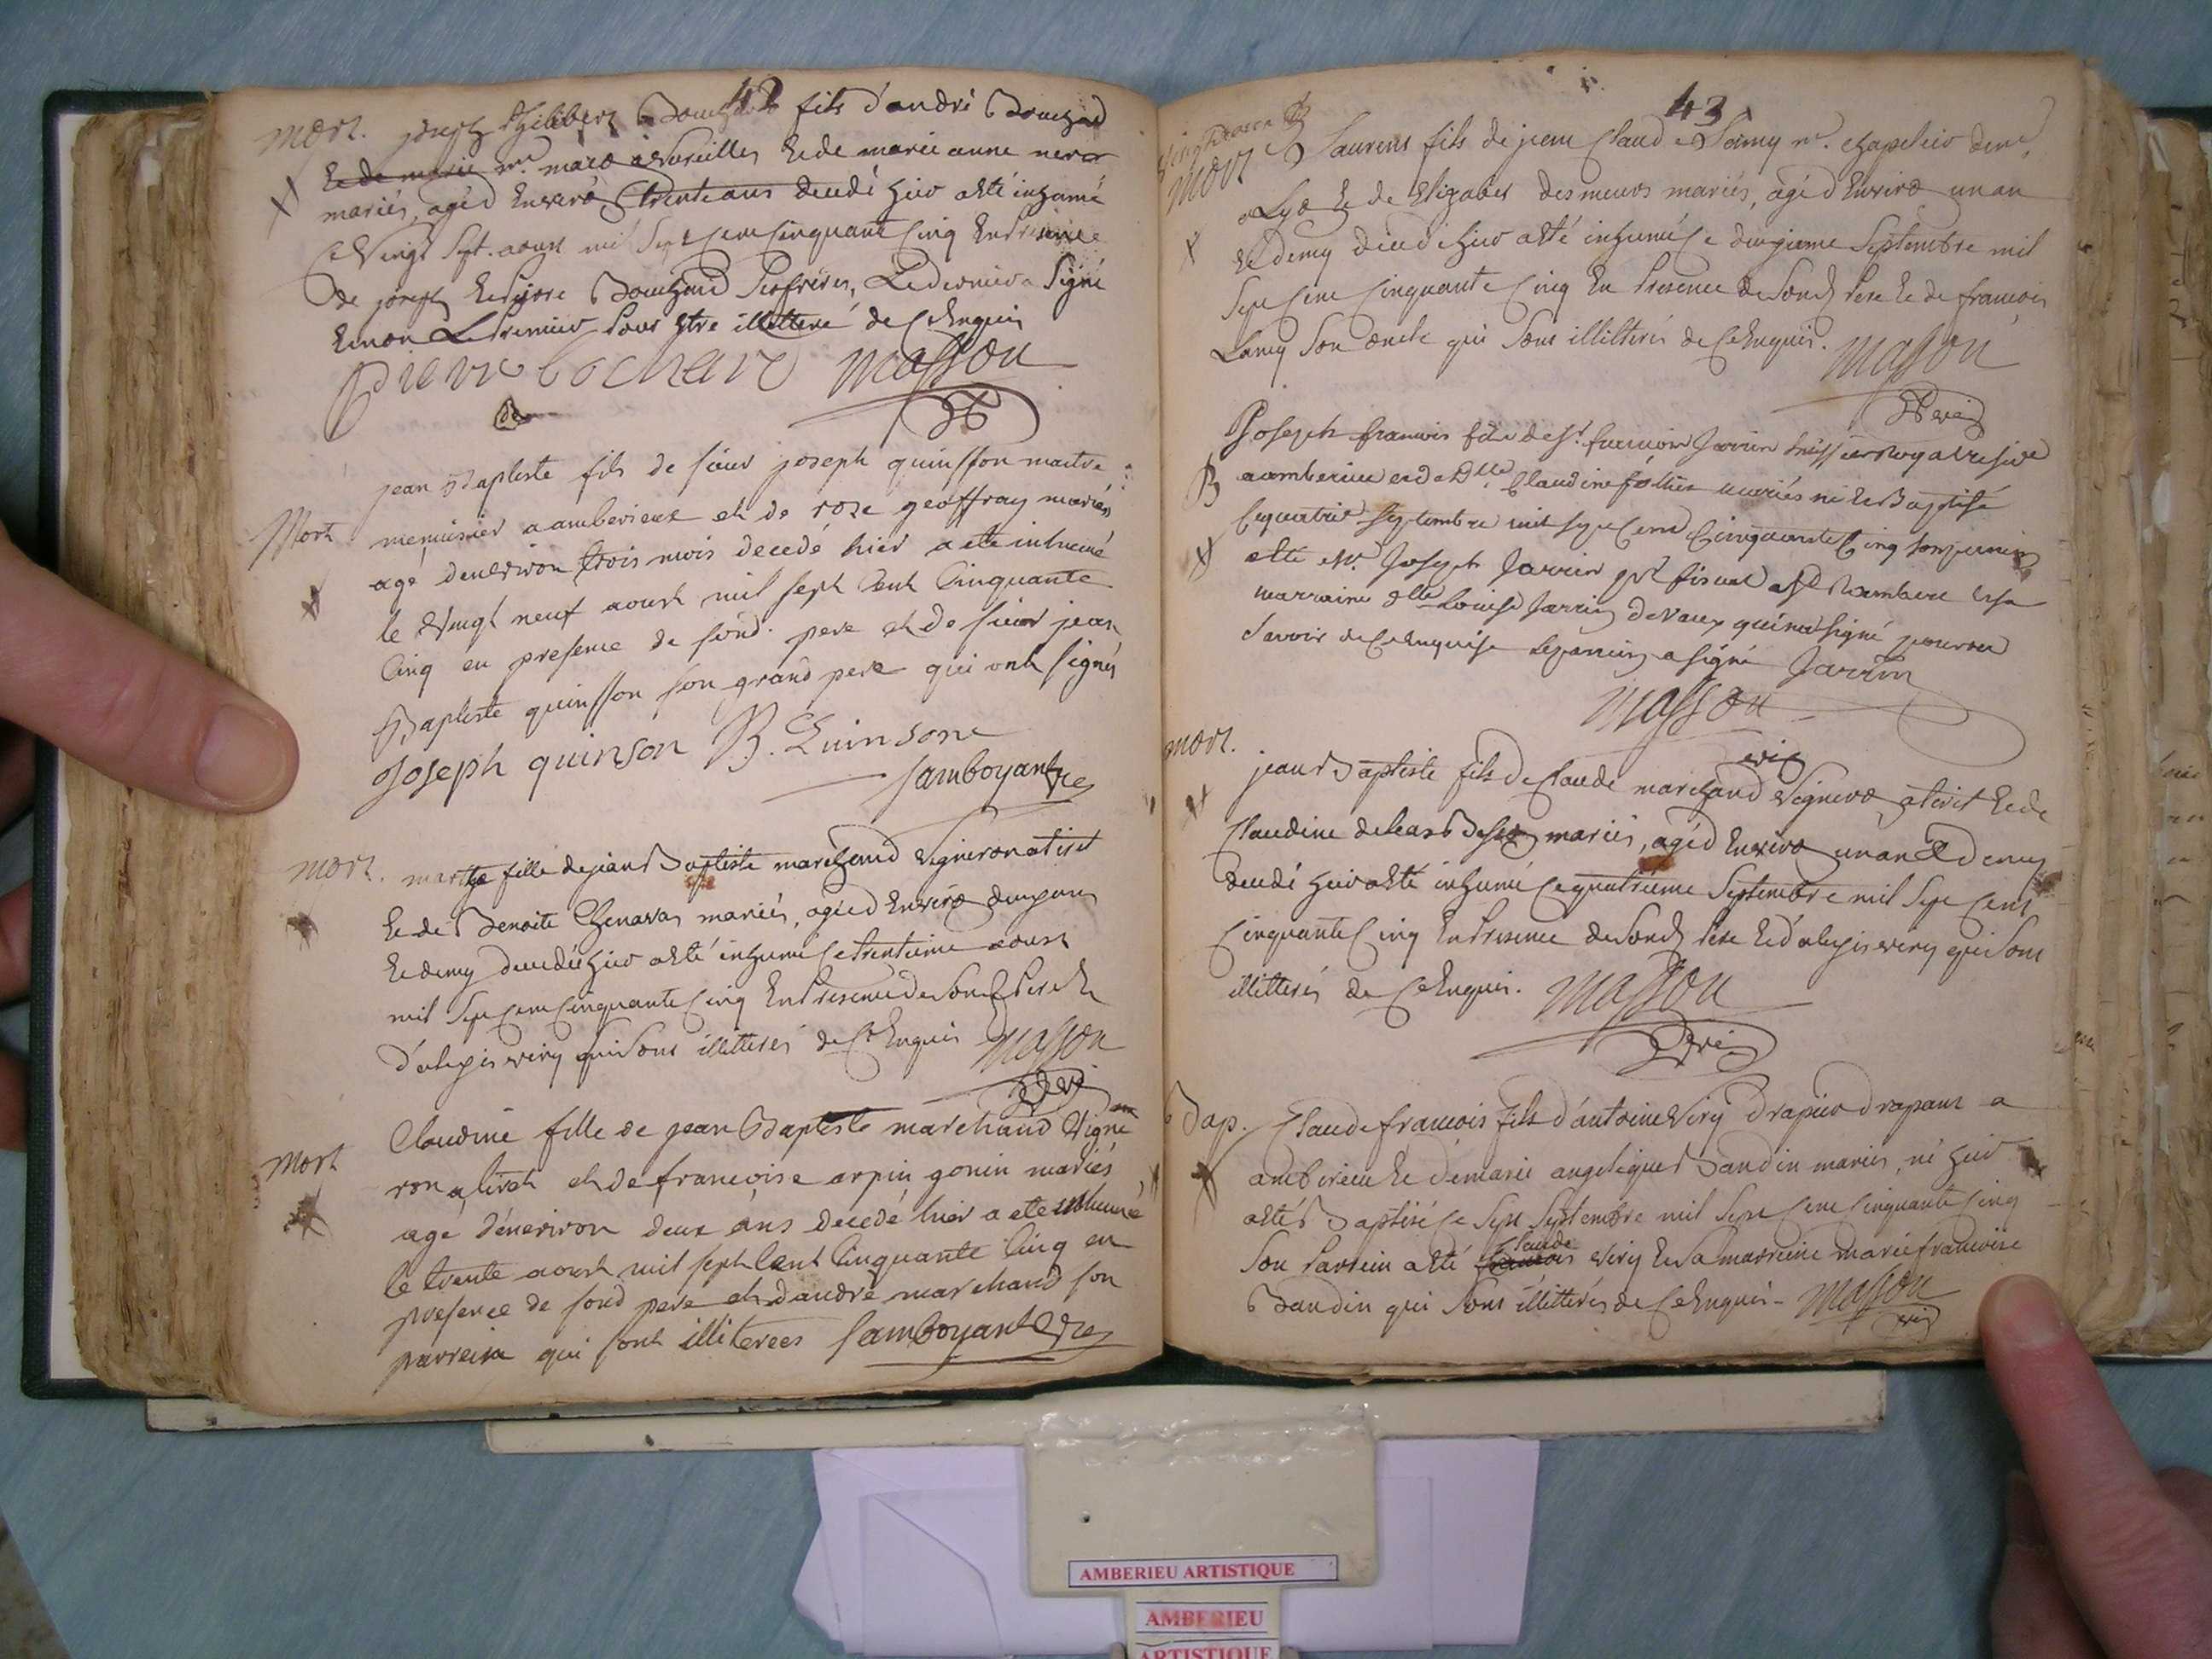 42
mort. joseph philibert Bouchard fils d'andré Bouchard
et de marie me. maçon a Vareilles et de marie anne
mariés, agé d'Environ trente ans decedé hier a été inhumé
ce Vingt Sept aoust mil Sept Cent Cinquante Cinq En Presence
de joseph et pierre Bouchard Ses freres, Le dernier a Signé
Et non Le Premier Pour Etre illitteré de Ce Enquis
pierre bochard Masson
jean Baptiste fils de sieur joseph quinsson maitre
Mort menuisier a amberieux et de roze geoffray mariés
agé denviron trois mois decedé hier a ete inhumé
le Vingt neuf aoust mil sept Cent Cinquante
Cinq en presence de sond. pere et de sieur jean
Baptiste quinsson son grand pere qui ont signés
Joseph quinson B. Quinsone
Jamboyant Vic
mort. marthe fille de jean Baptiste marchand Vigneron a tiret
Et de Benoite Chenavas mariés, agée d'Environ deux ans
Et demy decedée hier a été inhumé Ce trentieme aoust
mil Sept Cent Cinquante Cinq En Presence de Sond Pere Et
d'alexis Viry qui Sont illitterés de Ce Enquis Masson
Vic
Claudine fille de jean Baptiste marchand Vigne
Mort ron a tiret et de françoise arpin gonin mariés
agé d'énviron deux ans decedé hier a ete inhumé
le trente aoust mil sept Cent Cinquante Cinq en
presence de sond pere et d'andré marchand son
parrein qui sont illiterees Jamboyant Vic
43
mort Laurens fils de jean Claude Lamy me. chapelier demt.
a Lyon Et de Elizabet desmeurs mariés, agé d'Environ un an
Et demy decedé hier a été inhumé Ce deuxieme Septembre mil
Sept Cent Cinquante Cinq En Presence de Sond Pere Et de francois
Lamy Son oncle qui Sont illitterés de Ce Enquis. Masson
Vic
Joseph francois fils de Sr. francois Jarrin huissier Royal reside
B a amberieu et de Dlle. Claudine mariés né Et Baptisé
Ce quatrie Septembre mil Sept Cent Cinquante Cinq Son parrein
a été Mr. Joseph Jarrin pr. fiscal a St Rambert et sa
marraine dlle Louise Jarrin devaux qui n'a signé pour ne
Savoir de Ce Enquise Le parrein a signé Jarrin
Masson
Vic
mort.
jean Baptiste fils de Claude marchand Vigneron a tiret Et de
Claudine mariés, agé d'Environ un an Et demy
decedé hier a été inhumé Ce quatrieme Septembre mil Sept Cent
Cinquante Cinq En Presence de Sond Pere Et d'alexis Viry qui Sont
illitterés de Ce Enquis. Masson
Vic
Bap. Claude francois fils d'antoine Viry drapier drapant a
amberieu Et de marie angelique Baudin mariés, né hier
a été Baptisé Ce Sept Septembre mil Sept Cent Cinquante Cinq
Claude
Son Parrein a été francois Viry Et Sa marreine marie francoise
Baudin qui Sont illitterés de Ce Enquis - Masson
Vic
AMBERIEU ARTISTIQUE
AMBERIEU
ARTISTIQUE